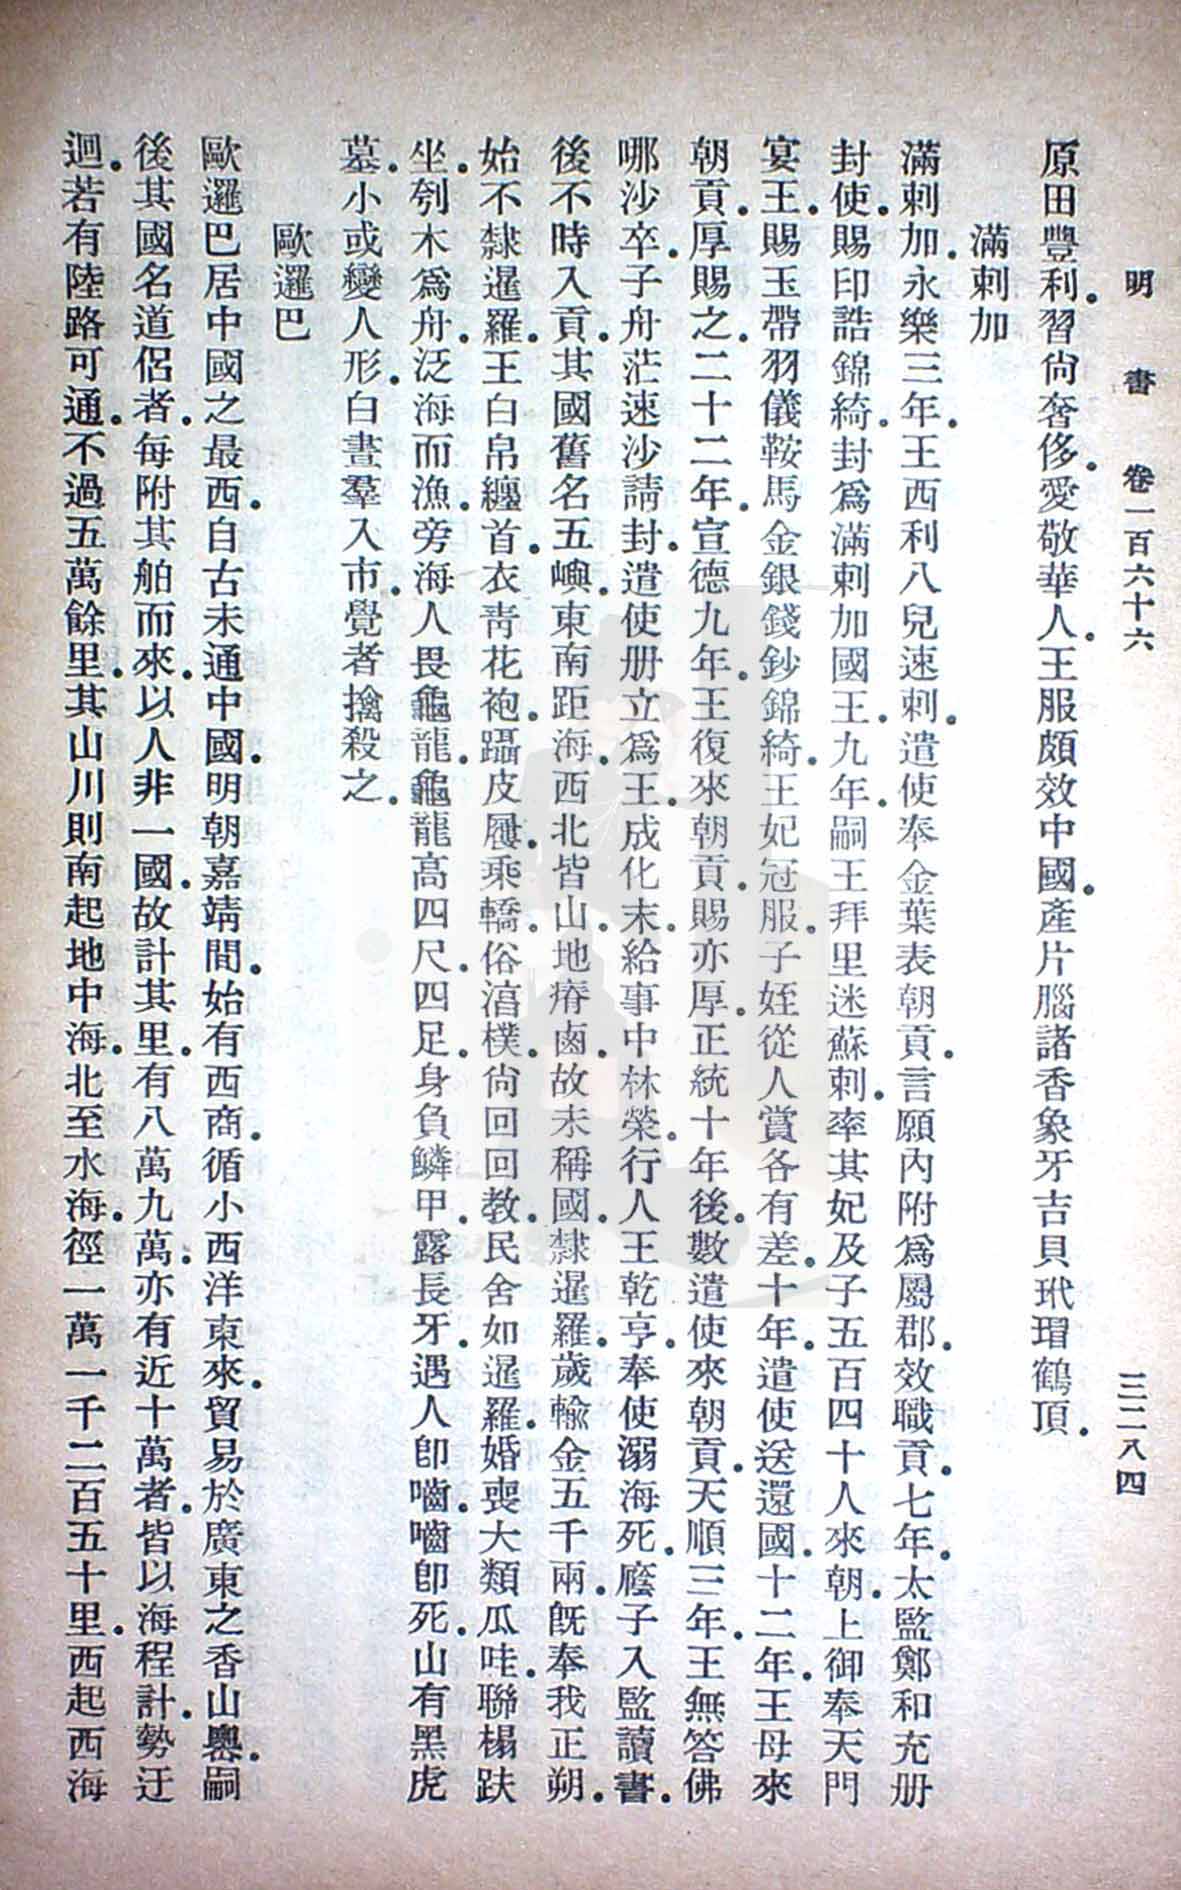 明　書　卷一百六十六　三二八四
原田豐利.習尙奢侈.愛敬華人.王服頗效中國.產片腦諸香象牙吉貝玳瑁鶴頂.
滿刺加
滿刺加.永樂三年.王西利八兒速刺.遣使奉金葉表朝貢.言願內附爲屬郡.效職貢.七年.太監鄭和充册
封使.賜印誥錦綺.封爲滿刺加國王.九年.嗣王拜里迷蘇刺.率其妃及子五百四十人來朝.上御奉天門
宴王.賜玉帶羽儀鞍馬金銀錢鈔錦綺.王妃冠服.子姪從人賞各有差.十年.遣使送還國.十二年.王母來
朝貢.厚賜之.二十二年.宣德九年.王復來朝貢.賜亦厚.正統十年後.數遣使來朝貢.天順三年.王無答佛
哪沙卒.子舟茫速沙請封.遣使册立爲王.成化末.給事中林榮.行人王乾亨.奉使溺海死.廕子入監讀書.
後不時入貢.其國舊名五嶼.東南距海.西北皆山.地瘠鹵.故未稱國.隸暹羅.歲輸金五千兩.旣奉我正朔.
始不隸暹羅.王白帛纏首.衣靑花袍.躡皮屨.乘轎.俗湻樸.尙回回教.民舍如暹羅.婚喪大類瓜哇.聯榻趺
坐.刳木爲舟.泛海而漁.旁海人畏龜龍.龜龍高四尺.四足.身負鱗甲.露長牙.遇人卽嚙.嚙卽死.山有黑虎
墓.小或變人形.白晝羣入市.覺者擒殺之.
歐邏巴
歐邏巴居中國之最西.自古未通中國.明朝嘉靖間.始有西商.循小西洋東來.貿易於廣東之香山嶴.嗣
後其國名道侶者.每附其舶而來.以人非一國.故計其里.有八萬九萬.亦有近十萬者.皆以海程計.勢迂
迴.若有陸路可通.不過五萬餘里.其山川則南起地中海.北至水海.徑一萬一千二百五十里.西起西海